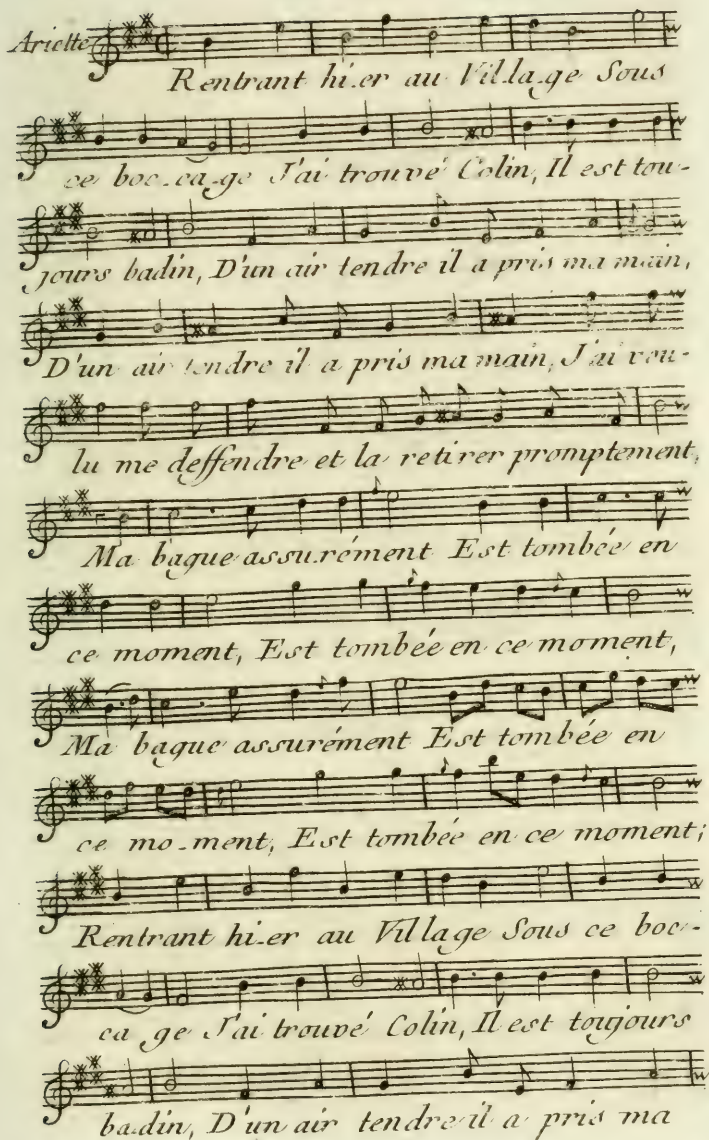 Ariette
Rentrant hi-er au Vil-la-ge Sous
ce boc-ca-ge J'ai trouvé Colin, Il est tou-
jours badin, D'un air tendre il a pris ma main,
D'un air tendre il a pris ma main, J'ai vou-
lu me deffendre et la retirer promptement,
Ma bague assu-rément Est tombée en
ce moment, Est tombée en ce moment,
Ma bague assurément Est tombée en
ce mo-ment, Est tombée en ce moment;
Rentrant hi-er au Village Sous ce boc-
ca ge J'ai trouvé Colin, Il est toujours
ba-din, D'un air tendre il a pris ma